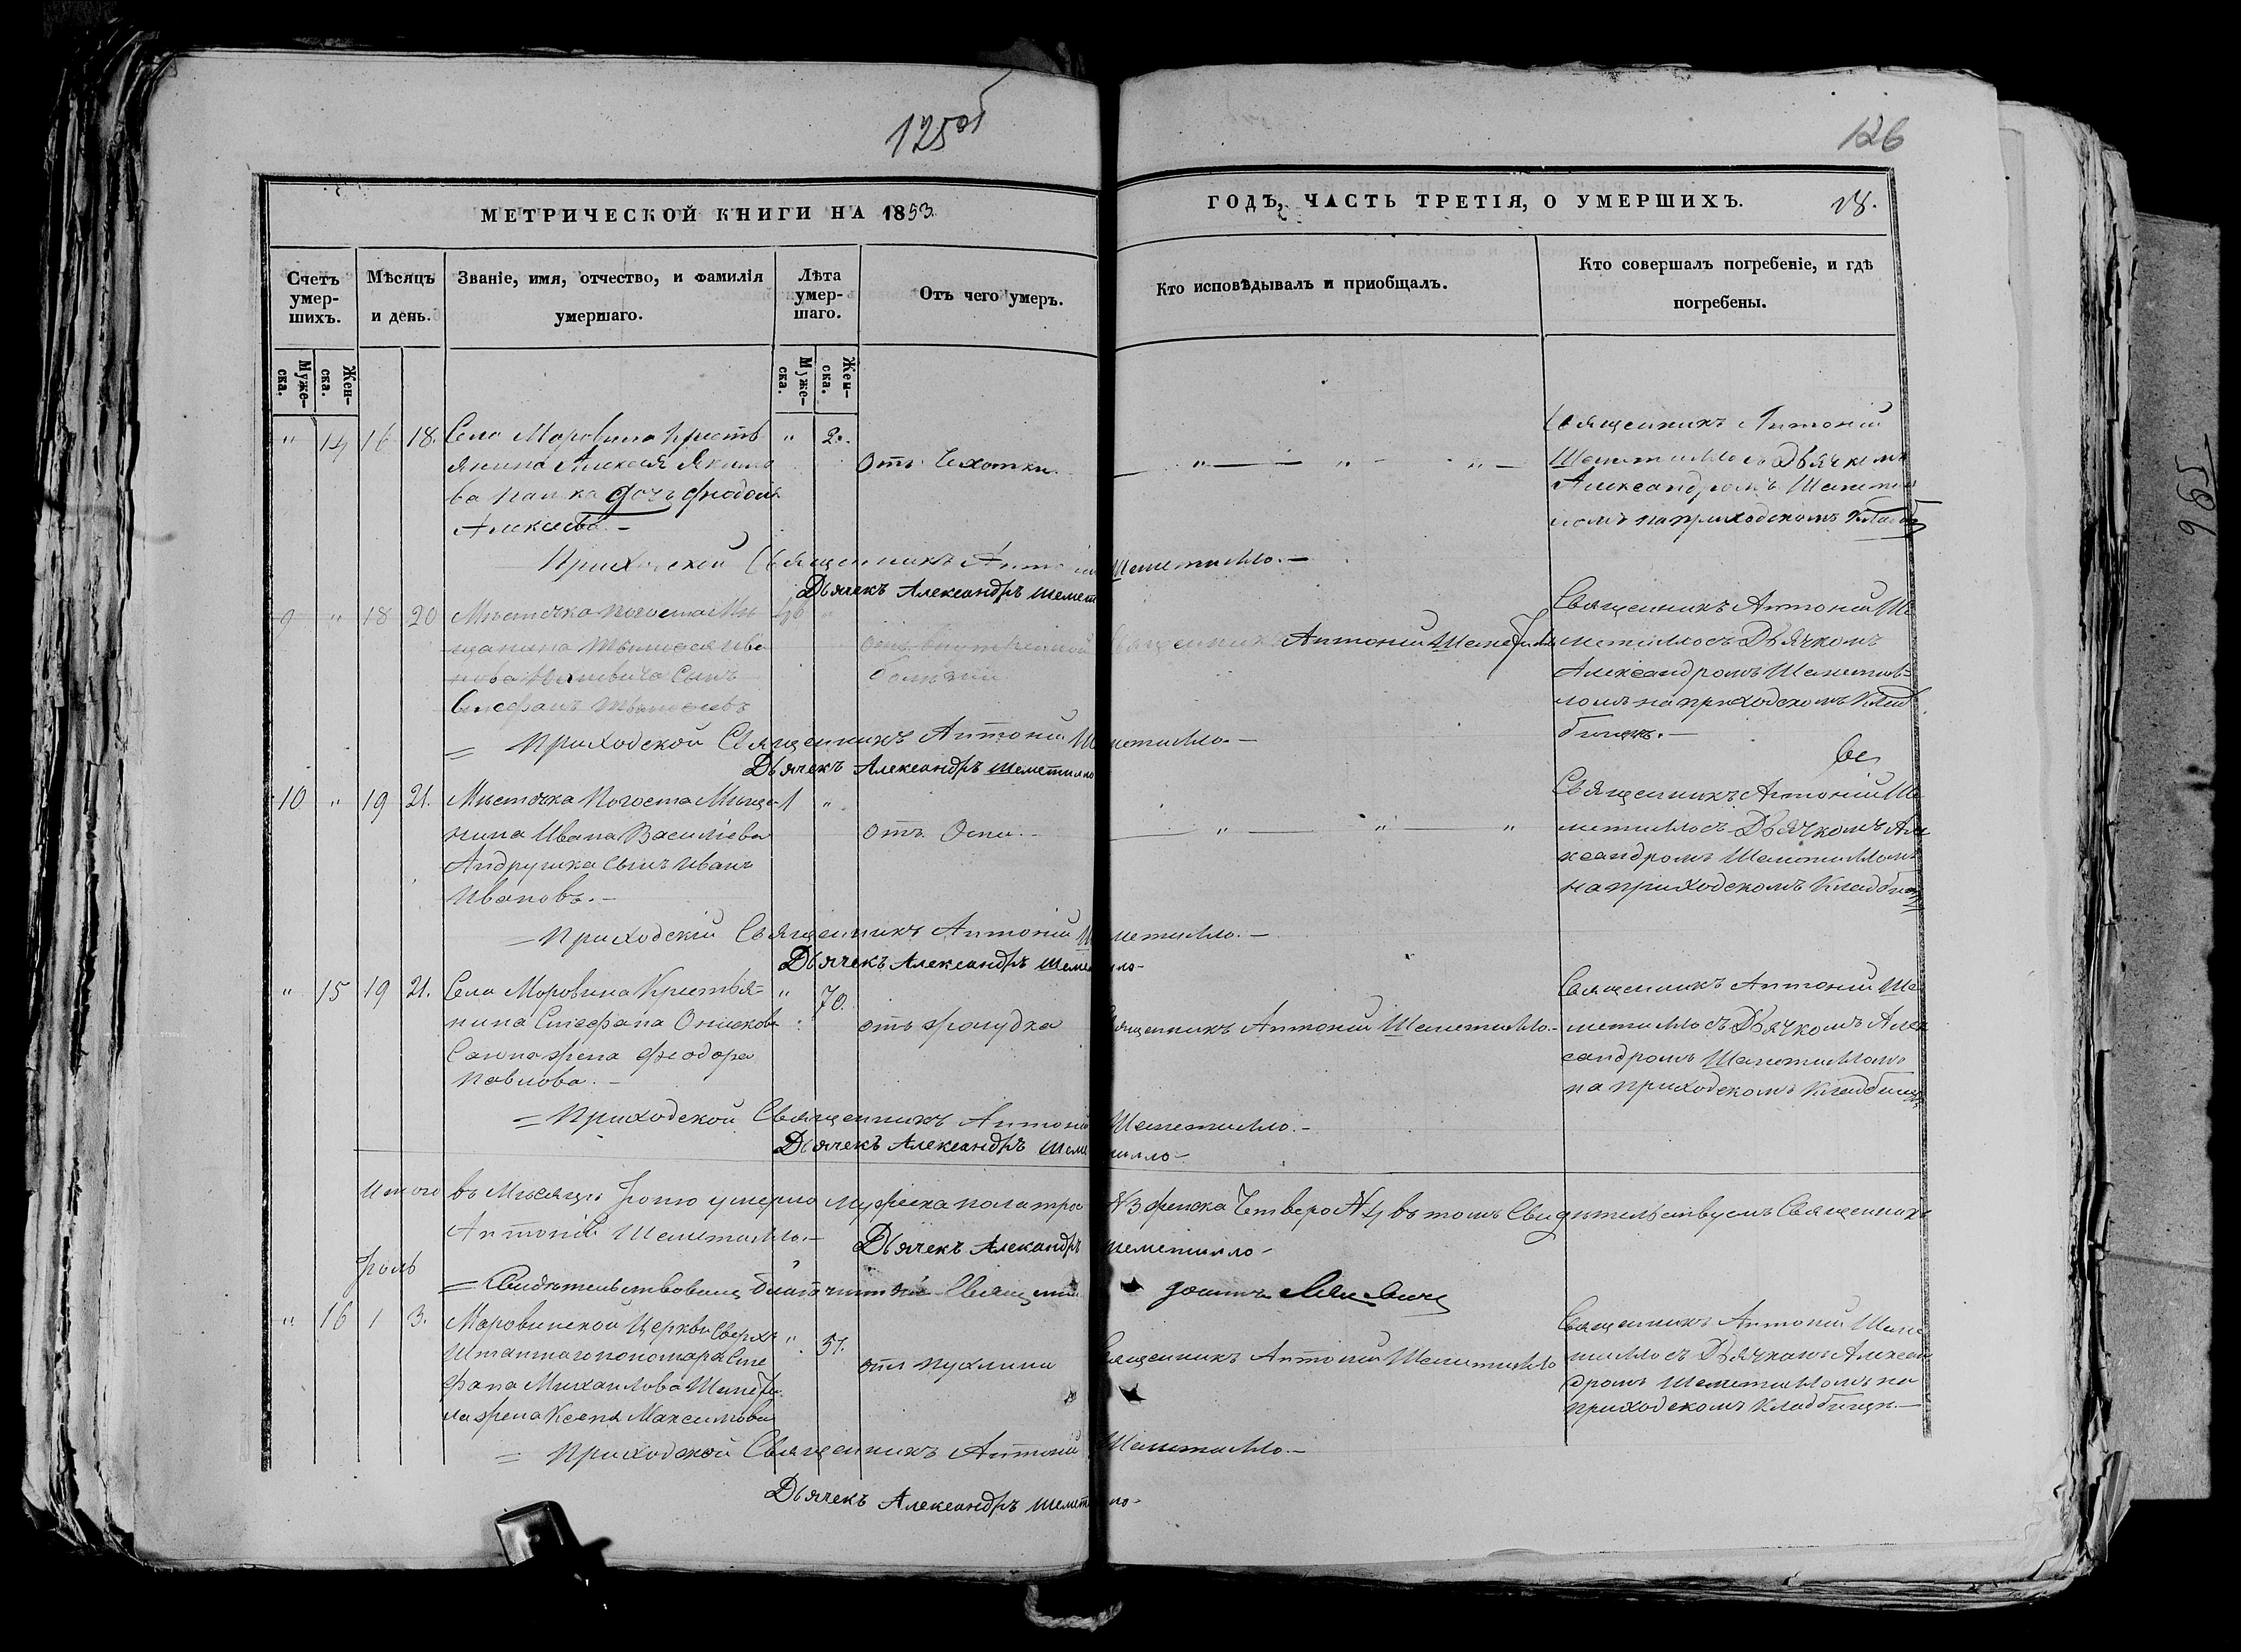 125об
126
МЕТРИЧЕСКОЙ КНИГИ НА 1853
ГОДЪ, ЧАСТЬ ТРЕТІЯ, О УМЕРШИХЪ.
18.
Счетъ умер-шихъ.
Мѣсяцъ и день.
Званіе, имя, отчество, и фамилія умершаго.
Лѣта умер-шаго.
Отъ чего умеръ.
Кто исповѣдывалъ и приобщалъ.
Кто совершалъ погребеніе, и гдѣ погребены.
Муже-ска.
Жен-ска.
Муже-ска.
Жен-ска.
" 14 16 18. Села Моровина Кресть
янина Алексея Якимо
ва дочь
Алексеева -
" 2.
Отъ Чахотки.
Священникъ Антоній
Шеметилло съ Дьячкомъ
Александромъ Шемети
ломъ на приходскомъ Кладб
Приходскій Священникъ Антоній Шеметилло. -
Дьячекъ Александръ Шемет
9 " 18 20 Мѣстечка Погоста Мѣ
щанина Тимофея Ива
нова Сынъ
Стефанъ Тимофеевъ
отъ внутренной
болѣзни
Священникъ Антоній Шеметилло
Священникъ Антоній Ше
метилло съ Дьячкомъ
Александромъ Шеметил
ломъ на приходскомъ Клад
бищѣ. -
= Приходской Священникъ Антоній Шеметилло. -
Дьячекъ Александръ Шеметилло
10 " 19 21. Мѣстечка Погоста Мѣща
нина Ивана Васильева
Андрушка Сынъ Иванъ
Ивановъ. -
1 "
отъ Оспы. -
Священникъ Антоній Ше
метилло съ Дьячкомъ Але
ксандромъ Шеметилломъ
на приходскомъ Кладбищѣ
= Приходскій Священникъ Антоній Шеметилло. -
Дьячекъ Александръ Шеметилло -
" 15 19 21. Села Моровина Крестья=
нина Стефана
жена Феодора
Павлова. -
" 70.
отъ желудка
Священникъ Антоній Шеметилло. -
Священникъ Антоній Ше
метилло съ Дьячкомъ Алек
сандромъ Шеметилломъ
на приходскомъ Кладбищѣ
= Приходской Священникъ Антоній Шеметилло. -
Дьячекъ Александръ Шеметилло -
Итого въ Мѣсяцѣ Іюнѣ умерло мужеска пола трое №3 женска Четверо №4 въ томъ Свидѣтельствуемъ Священникъ
Антоній Шеметилло. -
Дьячекъ Алекандръ Шеметилло -
= Свидѣтельствовалъ Благочинный Священникъ
Іюль
" 16 1 3. Моровинской Церкви Сверхъ
Штатнаго пономаря Сте
фана Михаилова Шемети
ла жена Ксенія Максимова
" 51.
отъ пухлины
Священникъ Антоній Шеметилло
Священникъ Антоній Шеме
тилло съ Дьячкомъ Алексан
дромъ Шеметилломъ на
приходскомъ Кладбищѣ. -
= Приходской Священникъ Антоній Шеметилло. -
Дьячекъ Александръ Шеметилло -
965